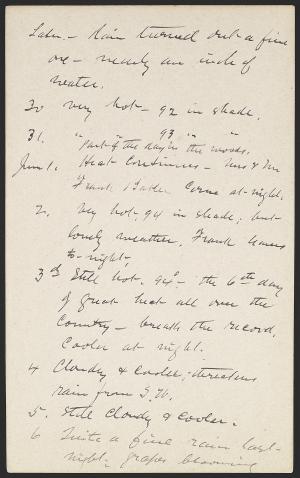 Later. - Rain turned out a fine
one - nearly an inch of
water.
30 Very hot - 92 in shade.
31. " " 93 " "
part of the day in the woods.
June 1. Heat continues - Mrs & Mr
Frank come at-night.
2. Very hot; 94 in shade; but
lovely weather. Frank leaves
to-night-
3d Still hot. 94° - the 6th day
of great heat all over the
Country - breaks the record.
Cooler at night.
4 Cloudy & cooler; threatens
rain from S.W.
5. Still cloudy & cooler.
6 Quite a fine rain last-
night; grapes blooming